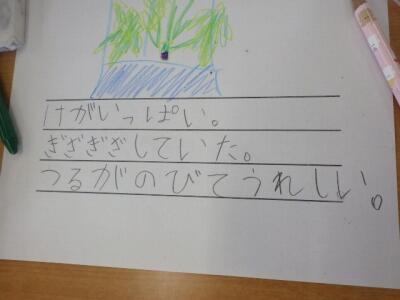 けがいっぱい。
ぎざぎざしていた。
つるがのびてうれしい。